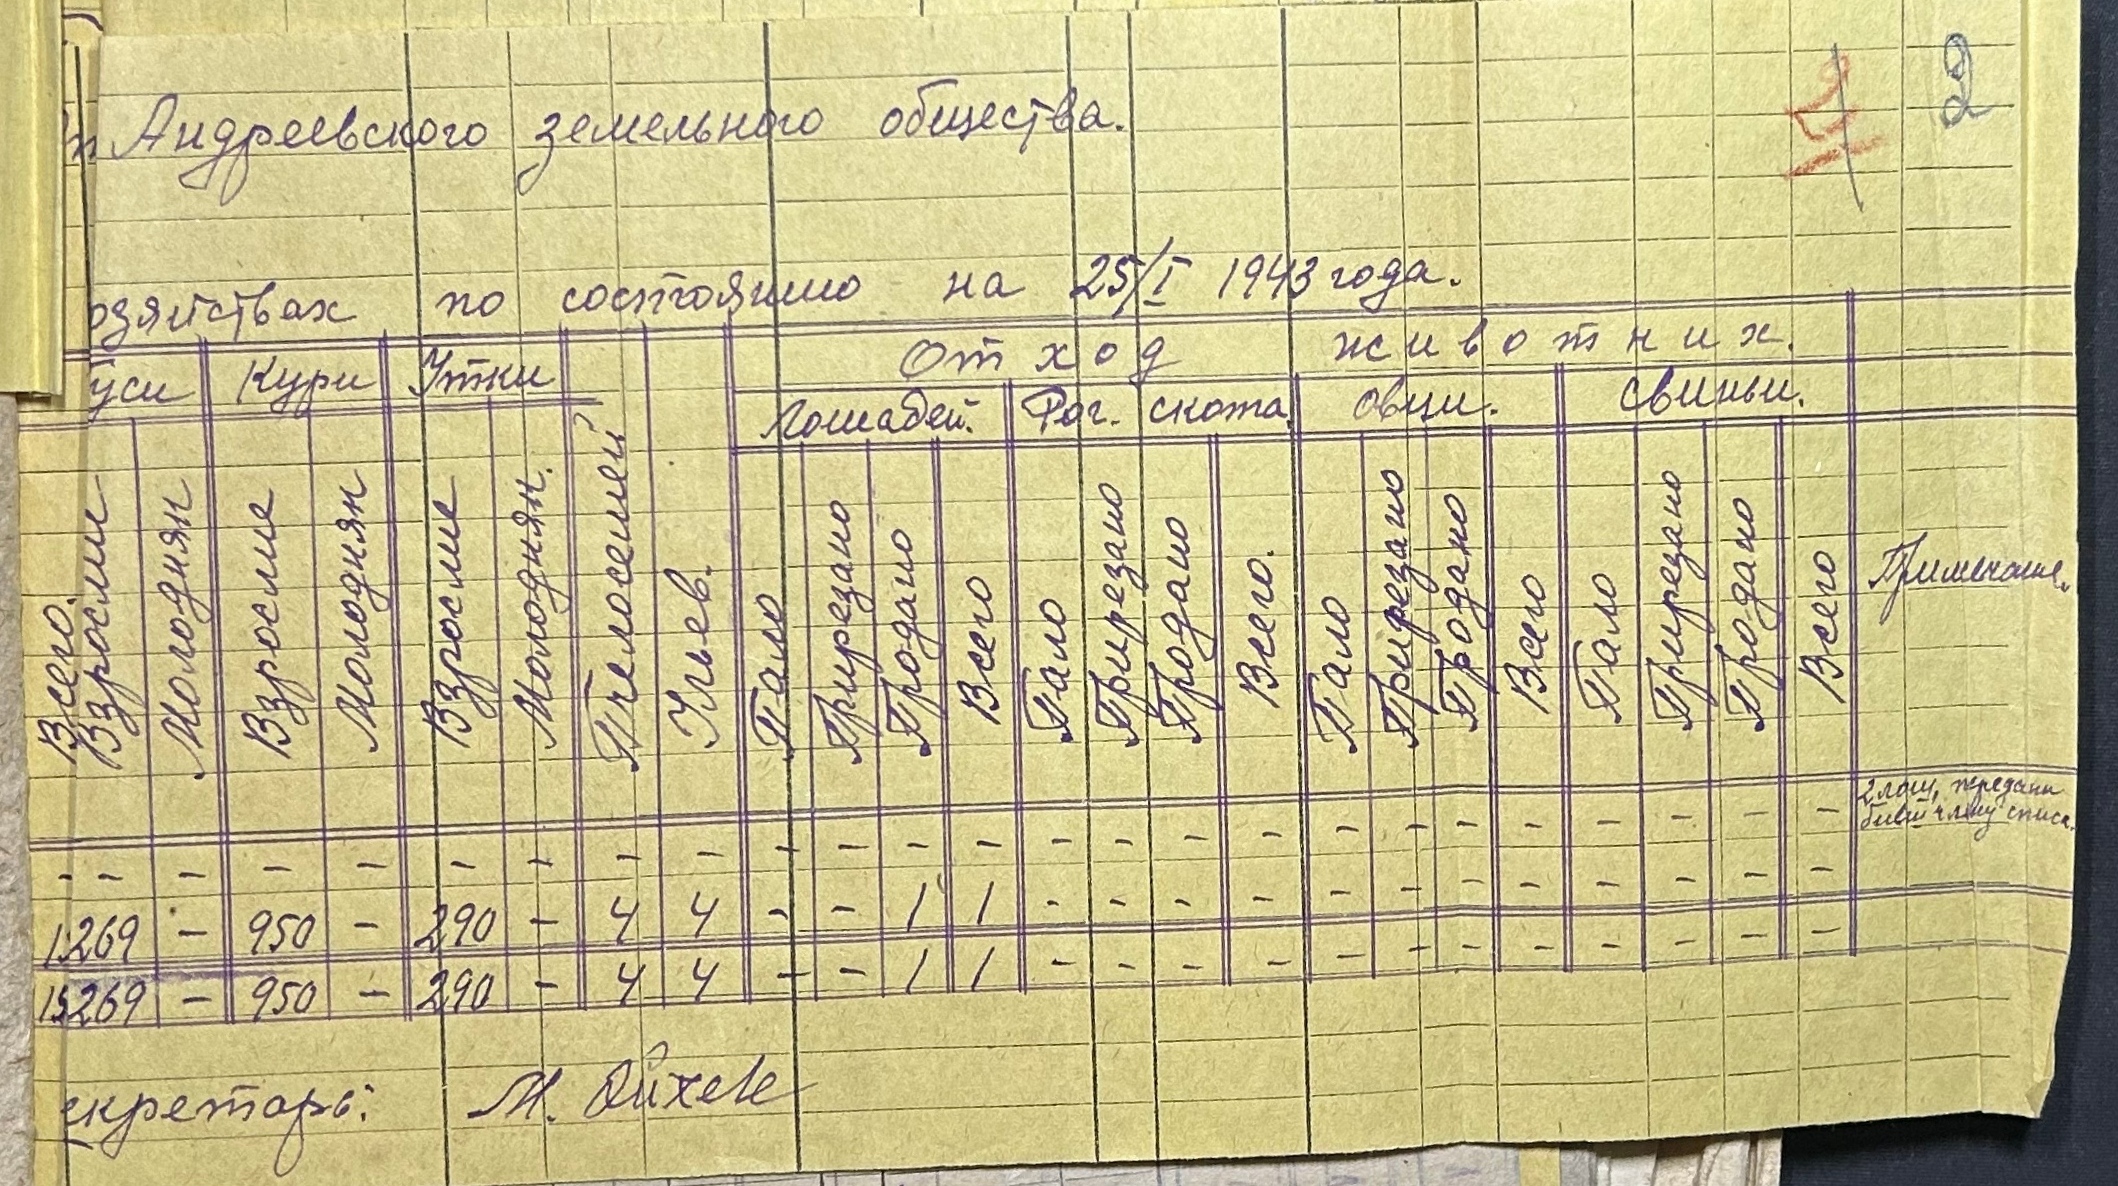 2
Андреевского земельного общества.
озяйствах по состоянию на 25/I 1943 года.
Отход животних.
уси Кури Утки
Лошадей. Рог. скота овци. свиньи.
Всего. Взрослие Молодняк Взрослие Молодняк Взрослие Молодняк. Пчелосемей Ульев. Пало Прирезано Продано Всего Пало Прирезано Продано Всего. Пало Прирезано Продано Всего Пало Прирезано Продано Всего Примечание.
- - - - - - - - - - - - - - - - - - - - - - - - - 2 лош, передани
бивш члену списа.
1 269 - 950 - 290 - 4 4 - - 1 1 - - - - - - - - - - - -
15 269 - 950 - 290 - 4 4 - - 1 1 - - - - - - - - - - - -
екретарь: М.